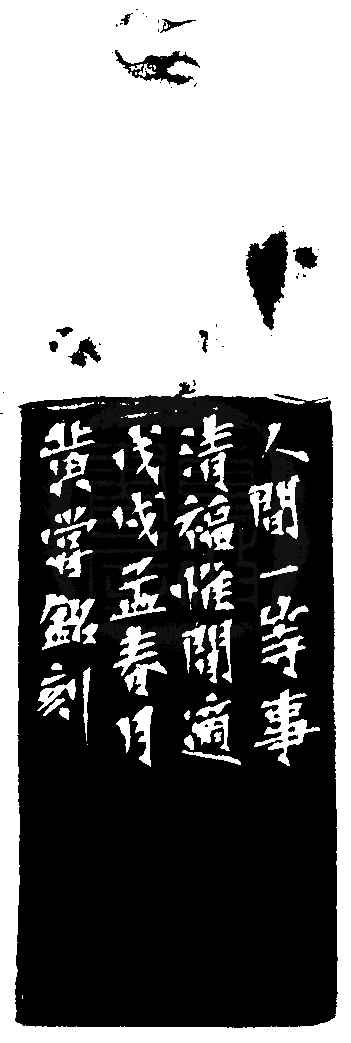 人間一等事
清福惟閒適
戊戌孟春月
黄嘗銘刻